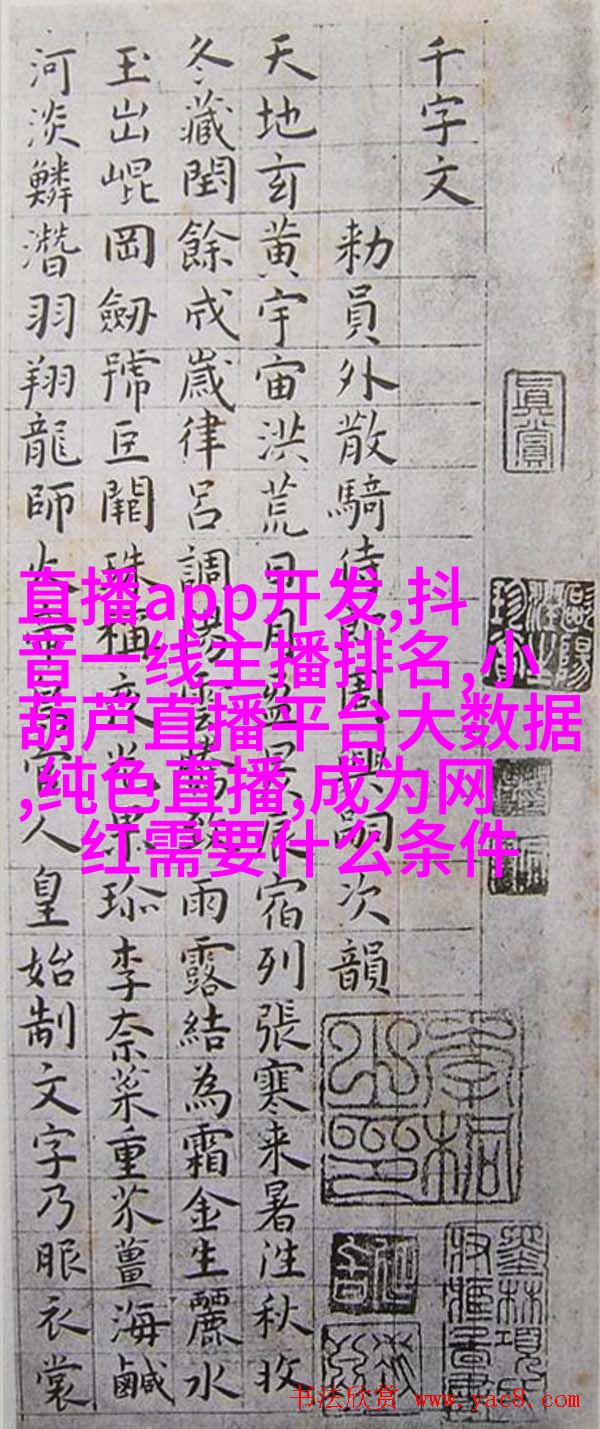 千字文
敕員外散騎侍郎周興嗣次韻
天地玄黄宇宙洪荒日月盈昃辰宿列張寒来暑往秋收
冬藏閏餘成歲律呂調陽雲騰致雨露結為霜金生麗水
玉出崐岡劒號巨闕珠稱夜光果珎李奈菜重芥薑海鹹
河淡鱗潛羽翔龍師火帝鳥官人皇始制文字乃服衣裳
真賞
直播app开发,抖
音一线主播排名,小
葫芦直播平台大数据
,纯色直播,成为网
红需要什么条件
书法欣赏 www.yac8.com